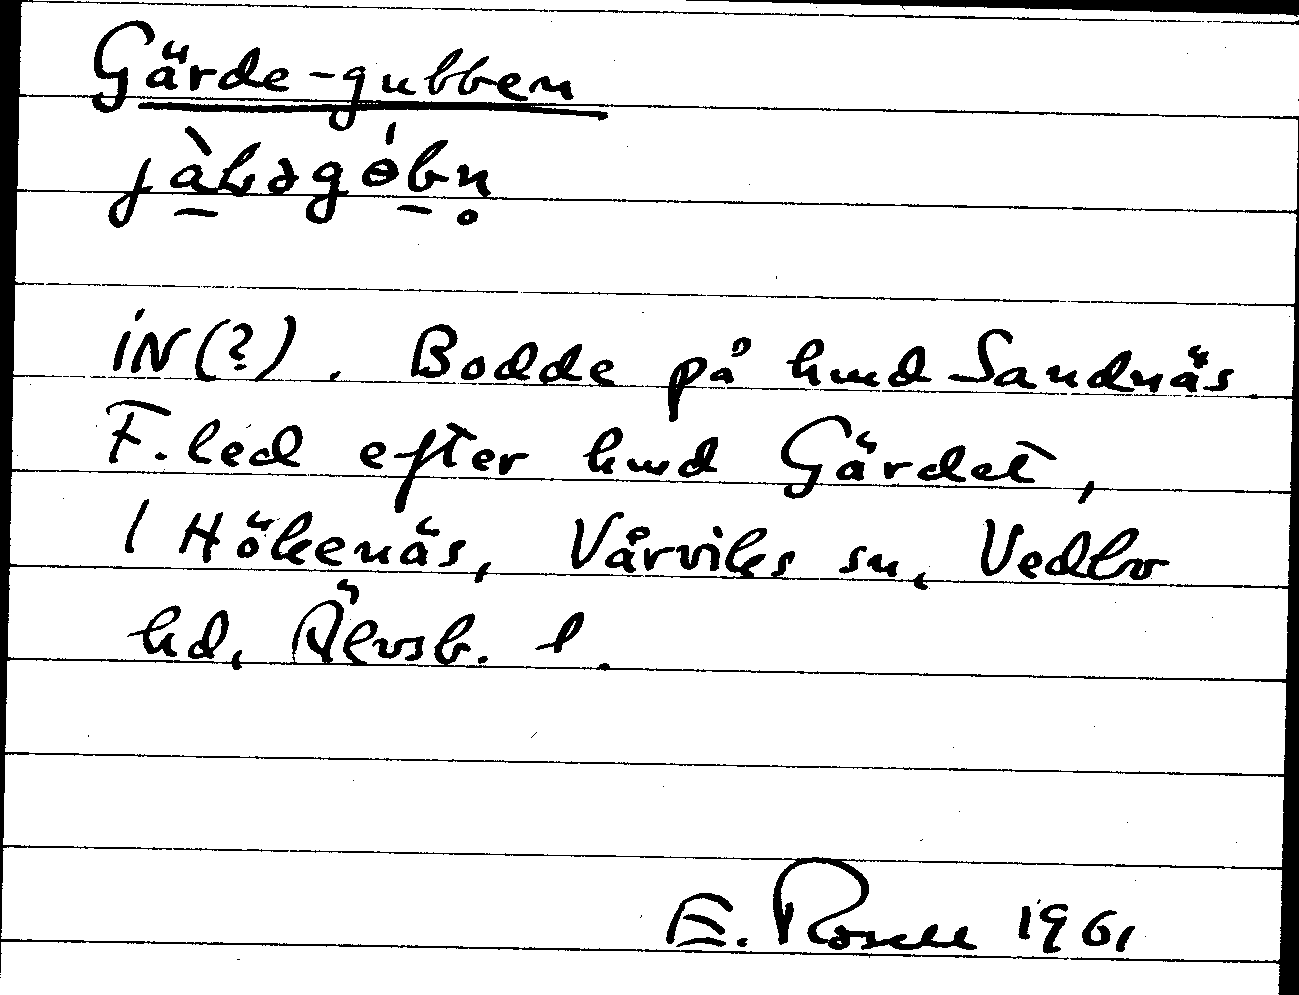 Gärde-gubben
iN(?). Bodde på hmd Sandnäs.
F.led efter hmd Gärdet,
i Hökenäs, Vårviks sn, Vedbo
hd, Älvsb. l.
E. Rosell 1961